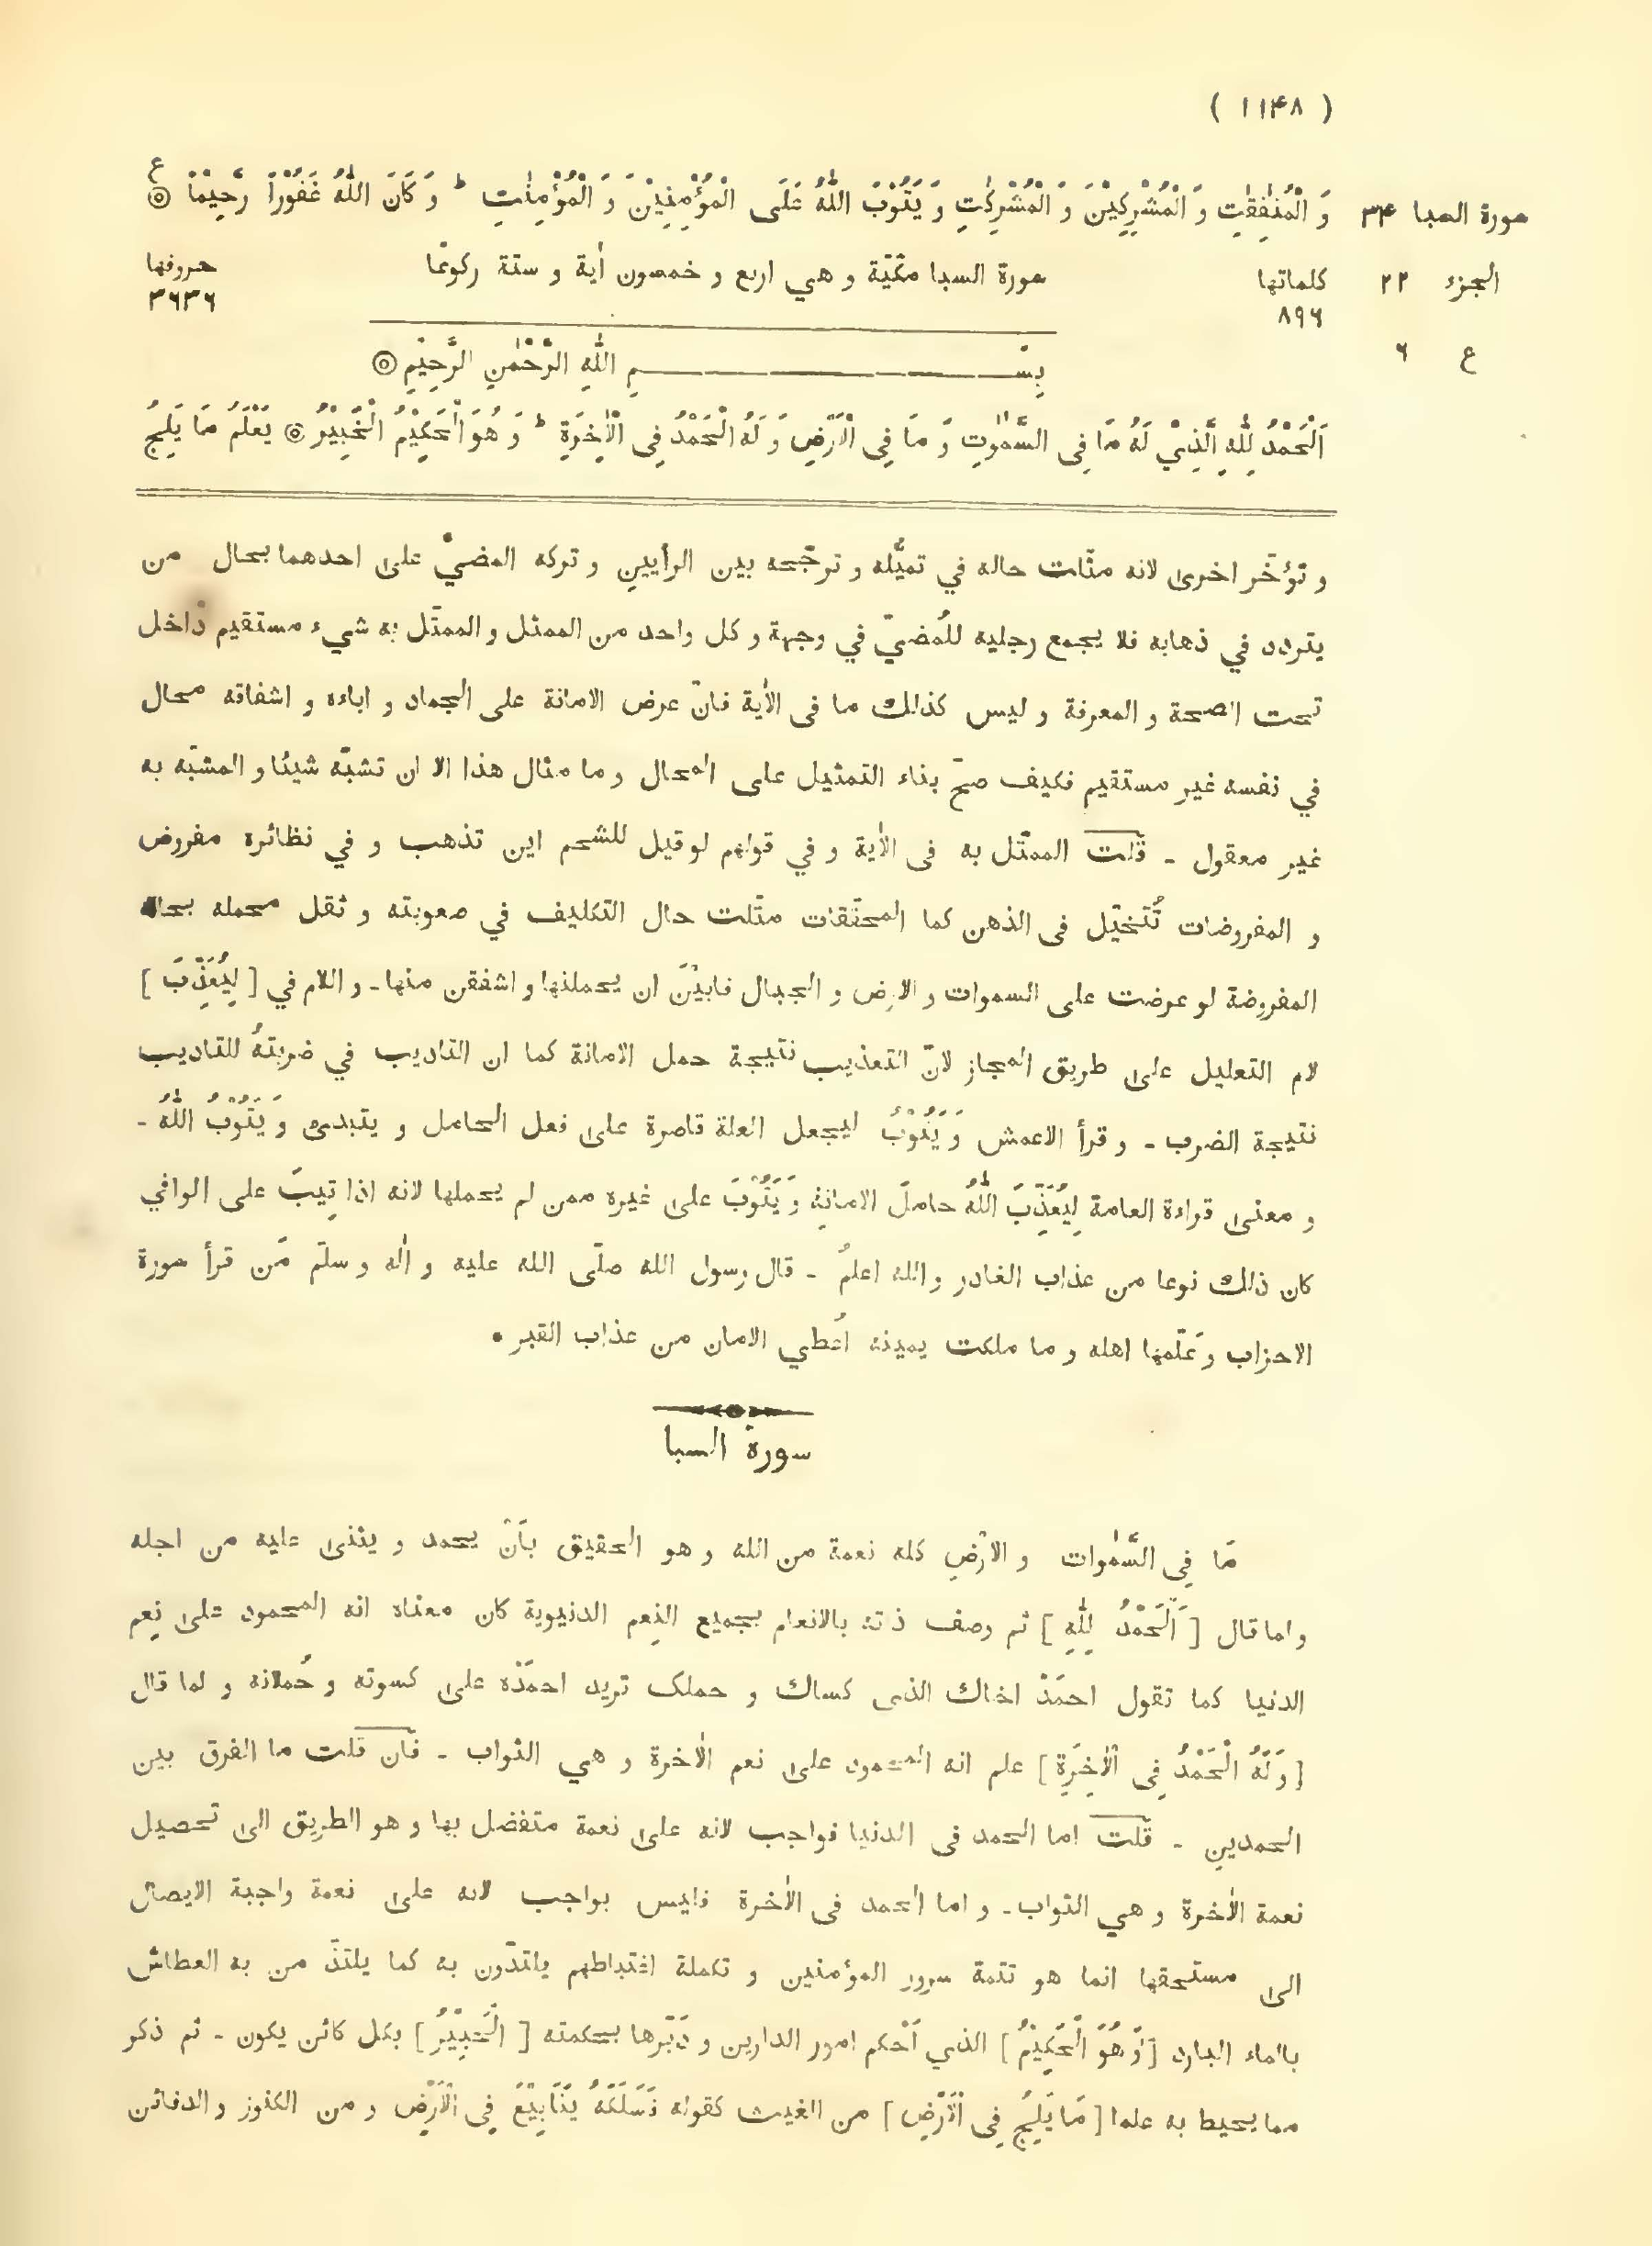 ( ۱۱۴۸ )
ع
سورة السبا ۳۴
وَ الْمُنٰفِقٰتِ وَ الْمُشْرِكِيْنَ وَ الْمُشْرِكٰتِ وَ يَتُوْبَ اللّٰهُ عَلَى الْمُؤْمِنِيْنَ وَ الْمُؤْمِنٰتِ ؕ وَ كَانَ اللّٰهُ غَفُوْرًا رَّحِيْمًا ۞
الجزء ۲۲
كلماتها سورة السبا مكّيّة و هي اربع و خمسون اٰية و ستة ركوعًا حروفها
۸۹۶ ۳۶۳۶
ع ۶
بِسْــــــمِ اللّٰهِ الرَّحْمٰنِ الرَّحِيْمِ ۞
اَلْحَمْدُ لِلّٰهِ الَّذِيْ لَهٗ مَا فِى السَّمٰوٰتِ وَ مَا فِى الْاَرْضِ وَ لَهُ الْحَمْدُ فِى الْاٰخِرَةِ ؕ وَ هُوَ الْحَكِيْمُ الْخَبِيْرُ ۞ يَعْلَمُ مَا يَلِجُ
و تؤخّر اخرى لانه مثّلت حاله في تميّله و ترجّحه بين الرأيين و تركه المضيّ على احدهما بحال من
يتردد في ذهابه فلا يجمع رجليه للمُضيّ في وجهة و كل واحد من الممثل و الممثّل به شيء مستقيم داخل
تحت الصحة و المعرفة و ليس كذلك ما فى الاٰية فانّ عرض الامانة على الجماد و اباءه و اشفاقه محال
في نفسه غير مستقيم فكيف صحّ بناء التمثيل على المحال و ما مثال هذا الا ان تشبّه شيئا و المشبّه به
غير معقول - قلت الممثّل به فى الاٰية و في قولهم لو قيل للشحم اين تذهب و في نظائره مفروض
و المفروضات تُتخيّل فى الذهن كما المحقّقات مثّلت حال التكليف في صعوبته و ثقل محمله بحاله
المفروضة لو عرضت على السموات و الارض و الجبال فابَيْنَ ان يحملنها و اشفقن منها - و اللام في [ لِيُعَذِّبَ ]
لام التعليل على طريق المجاز لانّ التعذيب نتيجة حمل الامانة كما ان التاديب في ضربتهُ للتاديب
نتيجة الضرب - و قرأ الاعمش وَ يَتُوْبُ ليجعل العلة قاصرة على فعل الحامل و يبتدئ وَ يَتُوْبُ اللّٰهُ -
و معنى قراءة العامة لِيُعَذِّبَ اللّٰهُ حاملَ الامانةِ وَ يَتُوْبَ على غيره ممن لم يحملها لانه اذا تِيبَ على الوافي
كان ذلك نوعا من عذاب الغادر و الله اعلم - قال رسول الله صلّى الله عليه و اٰله و سلّم مَن قرأ سورة
الاحزاب و عَلّمها اهله و ما ملكت يمينه اُعطي الامان من عذاب القبر •
سورة السبا
مَا فِى السَّمٰوات و الاَرضِ كله نعمة من الله و هو الحقيق بأن يحمد و يثنى عليه من اجله
و لما قال [ اَلْحَمْدُ لِلّٰهِ ] ثم وصف ذاته بالانعام بجميع النِعم الدنيوية كان معناه انه المحمود على نِعم
الدنيا كما تقول احمَدْ اخاك الذى كساك و حملك تريد احمَدْه على كسوته و حُملانه و لما قال
[ وَ لَهُ الْحَمْدُ فِى الْاٰخِرَةِ ] علم انه المحمود على نعم الاٰخرة و هي الثواب - فان قلت ما الفرق بين
الحمدين - قلت اما الحمد فى الدنيا فواجب لانه على نعمة متفضل بها و هو الطريق الى تحصيل
نعمة الاٰخرة و هي الثواب - و اما الحمد فى الاٰخرة فليس بواجب لانه على نعمة واجبة الايصال
الى مستحقها انما هو تتمة سرور المؤمنين و تكملة اغتباطهم يلتذّون به كما يلتذّ من به العطاش
بالماء البارد [ وَ هُوَ الْحَكِيْمُ ] الذي اَحْكم امور الدارين و دبّرها بحكمته [ الْخَبِيْرُ ] بكل كائن يكون - ثم ذكر
مما يحيط به علما [ مَا يَلِجُ فِى الْاَرْضِ ] من الغيث كقوله فَسَلَكَهٗ يَنَابِيْعَ فِى الْاَرْضِ و من الكنوز و الدفائن